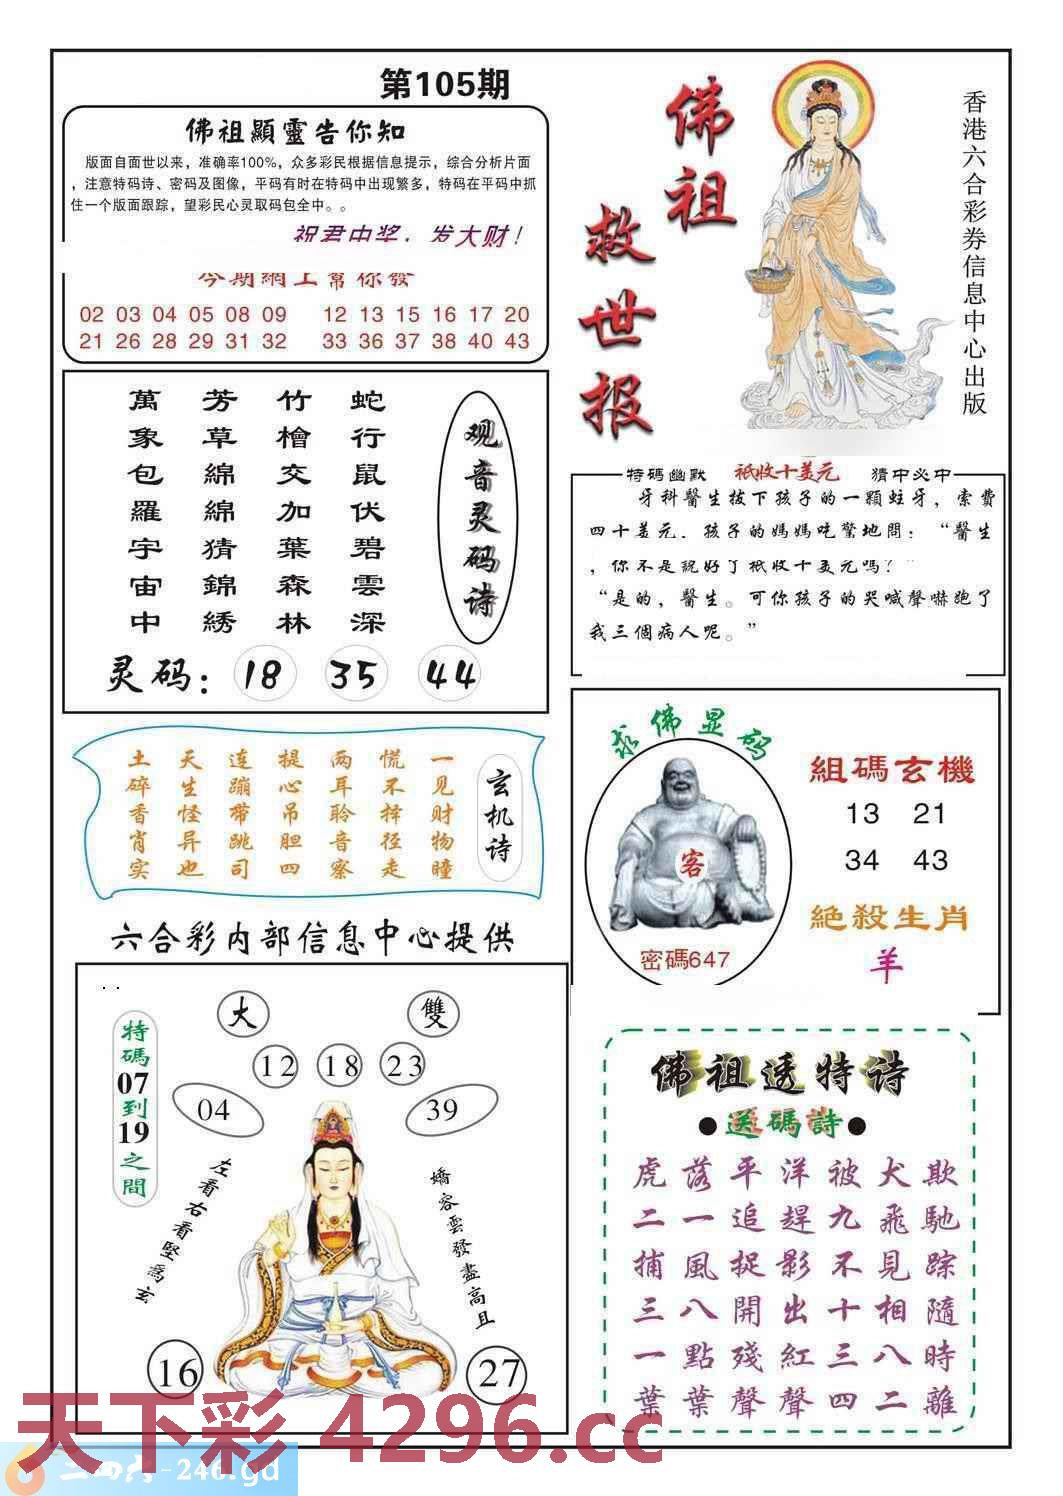 第105期
佛祖顯靈告你知
版面自面世以来，准确率100%，众多彩民根据信息提示，综合分析片面
，注意特码诗、密码及图像，平码有时在特码中出现繁多，特码在平码中抓
住一个版面跟踪，望彩民心灵取码包全中。。
祝君中奖，发大财！
今期網上幫你發
02 03 04 05 08 09 12 13 15 16 17 20
21 26 28 29 31 32 33 36 37 38 40 43
佛祖
救世报
香港六合彩券信息中心出版
观音灵码诗
蛇行鼠伏碧雲深
竹檜交加葉森林
芳草綿綿猜錦綉
萬象包羅宇宙中
灵码：18 35 44
特碼幽默 祇收十美元 猜中必中
牙科醫生拔下孩子的一顆蛀牙，索費
四十美元．孩子的媽媽吃驚地問：“醫生
，你不是説好了祇收十美元嗎？”
“是的，醫生。可你孩子的哭喊聲嚇跑了
我三個病人呢。”
玄机诗
一见财物瞳
慌不择径走
两耳聆音察
提心吊胆四
连蹦带跳司
天生怪异也
土碎香肖实
求佛显码
客
密碼647
組碼玄機
13 21
34 43
絶殺生肖
羊
六合彩内部信息中心提供
大 雙
12 18 23
04 39
特碼07到19之間
左看右看堅爲玄
嬌容雲發盡高且
16 27
佛祖透特诗
●送碼詩●
虎落平洋被犬欺
二一追趕九飛馳
捕風捉影不見踪
三八開出十相隨
一點殘紅三八時
葉葉聲聲四二離
天下彩 4296.cc
二四六-246.gd